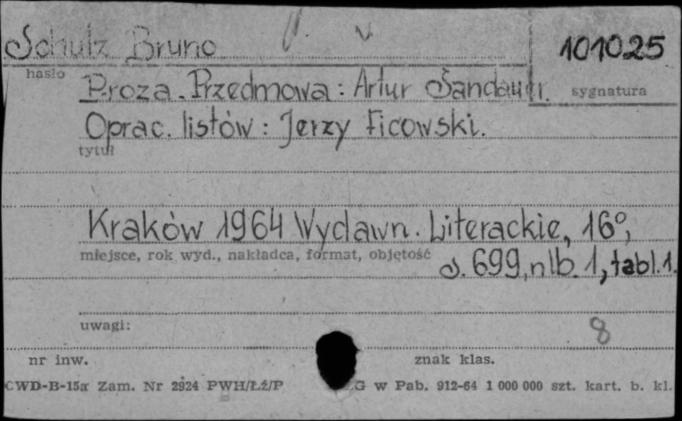 Schulz Bruno
101025
hasło
sygnatura
Proza. Przedmowa: Artur Sandauer.
Oprac. listów: Jerzy Ficowski.
tytuł
Kraków 1964 Wydawn. Literackie, 16°,
miejsce, rok wyd., nakładca, format, objętość
s. 699, nlb. 1, tabl. 1.
uwagi:
8
nr inw.
znak klas.
CWD-B-15a Zam. Nr 2924 PWH/Łź/P
G w Pab. 912-64 1 000 000 szt. kart. b. kl.